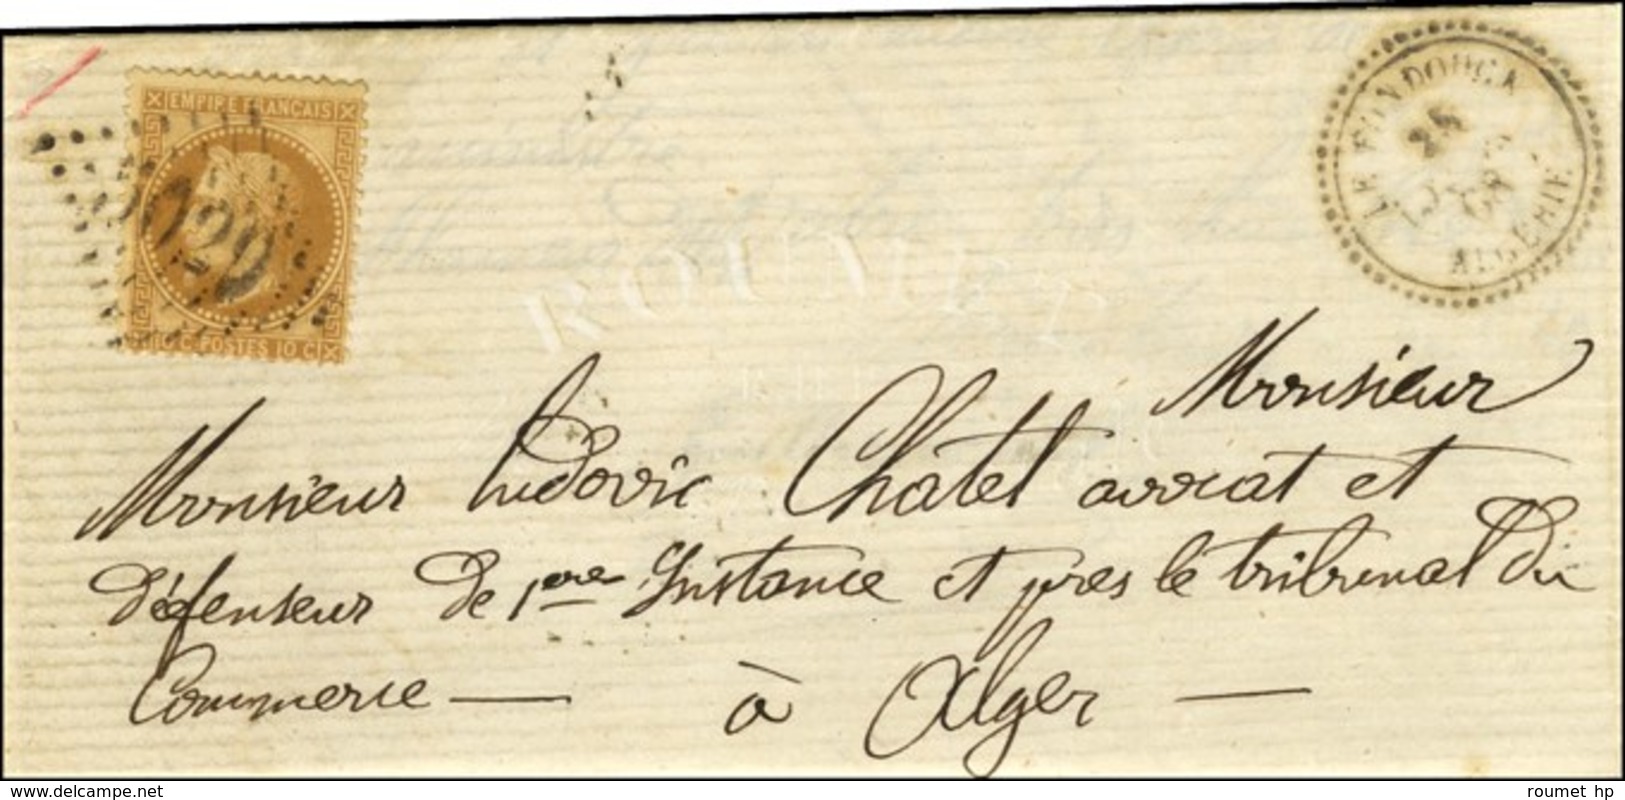 EMPIRE FRANÇAIS
5029
10 C POSTES 10 C
LE FONDOUCK
25
68
ALGÉRIE
ROUMET
Monsieur
Monsieur Ludovic Chatel avocat et
défenseur de 1ère Instance et près le tribunal du
Commerce —
à Alger —
www.delcampe.net
roumet hp